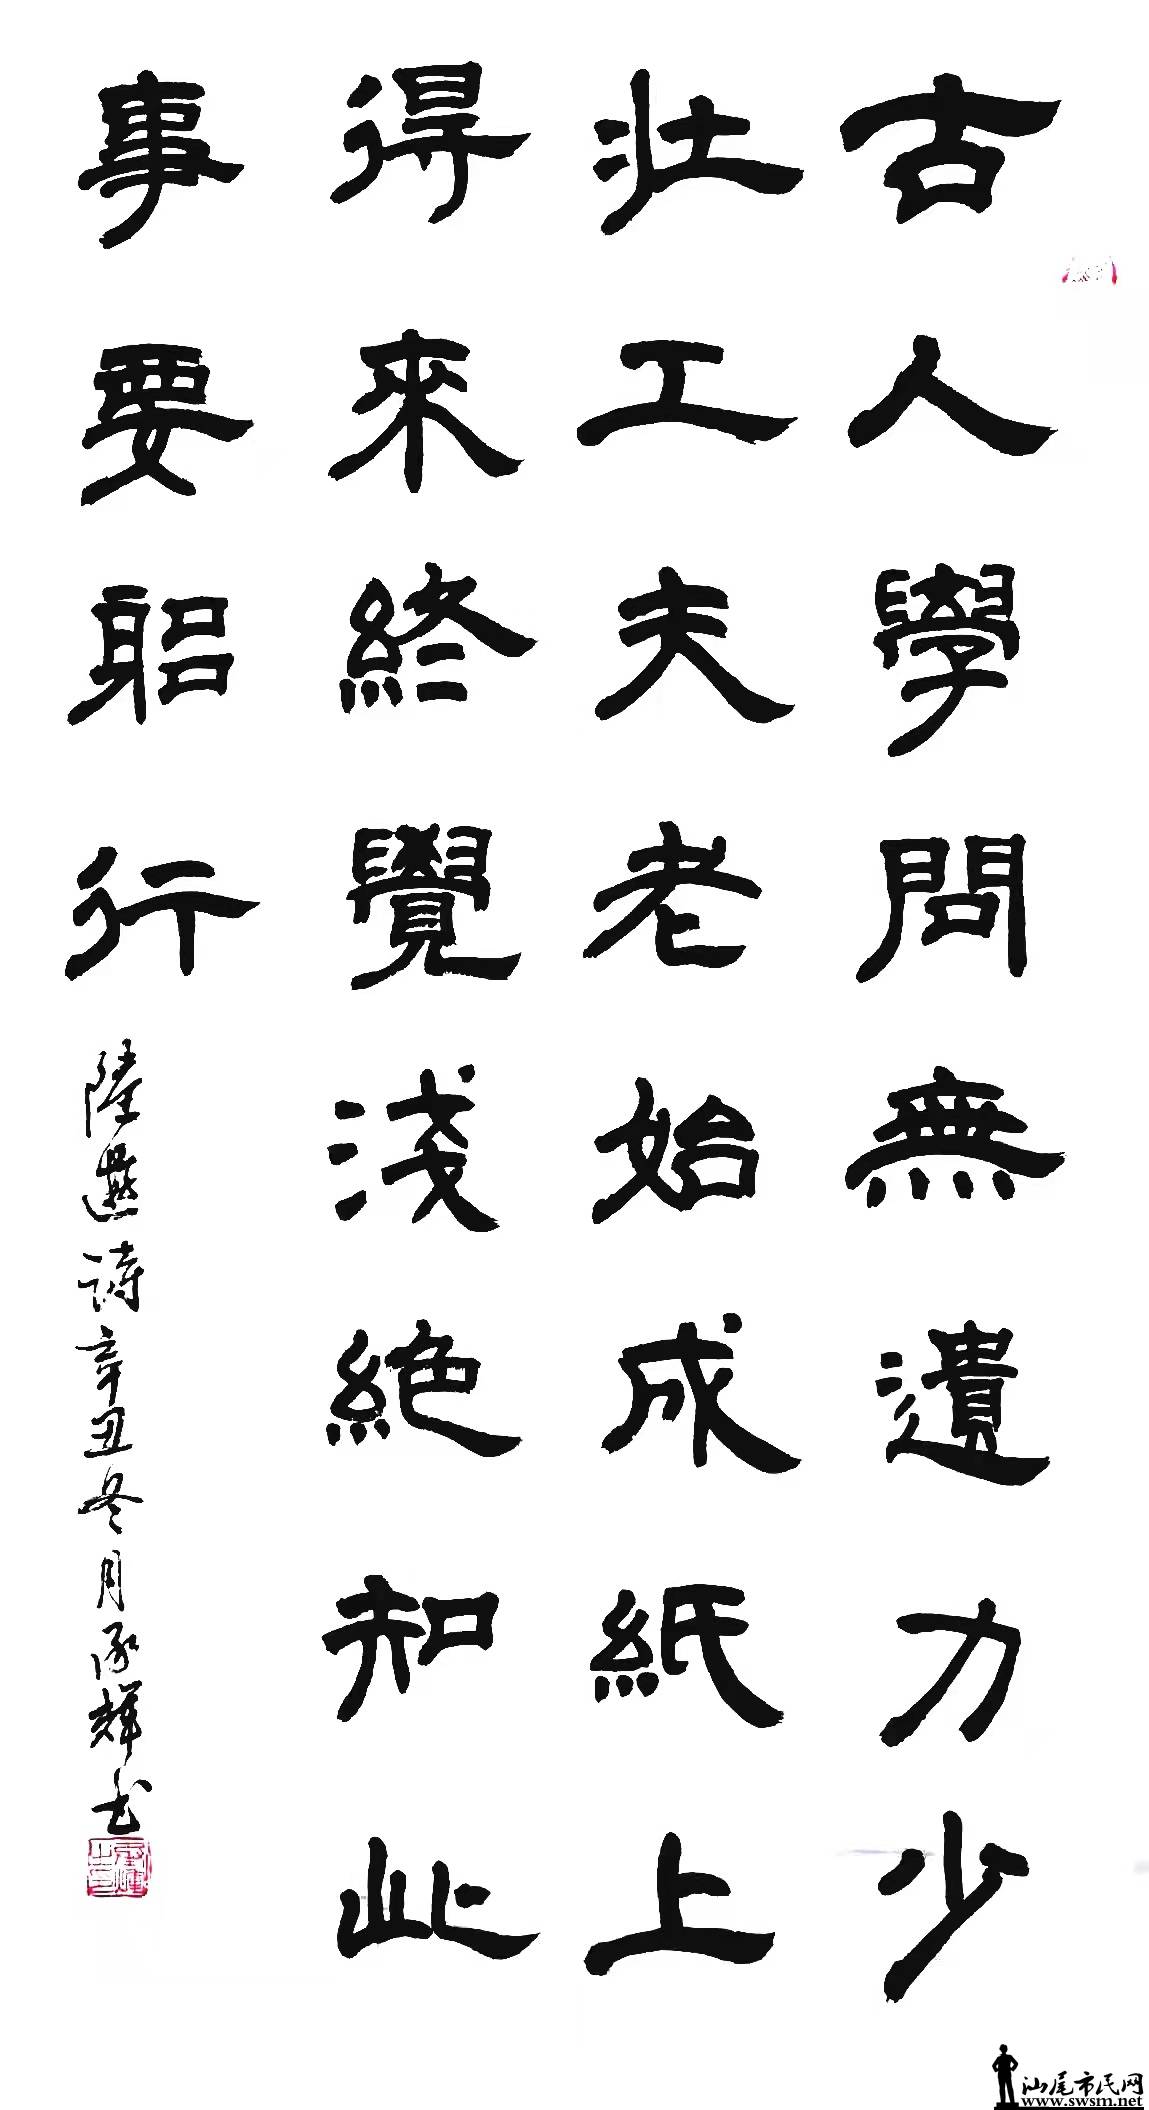 古人學問無遺力少
壯工夫老始成紙上
得來終覺淺絕知此
事要躳行
陸遊詩辛丑冬月承輝书
汕尾市民网
www.swsm.net